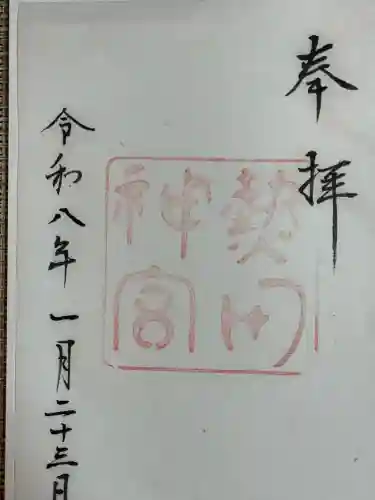 奉拝
勢門
神宮
令和八年一月二十三日